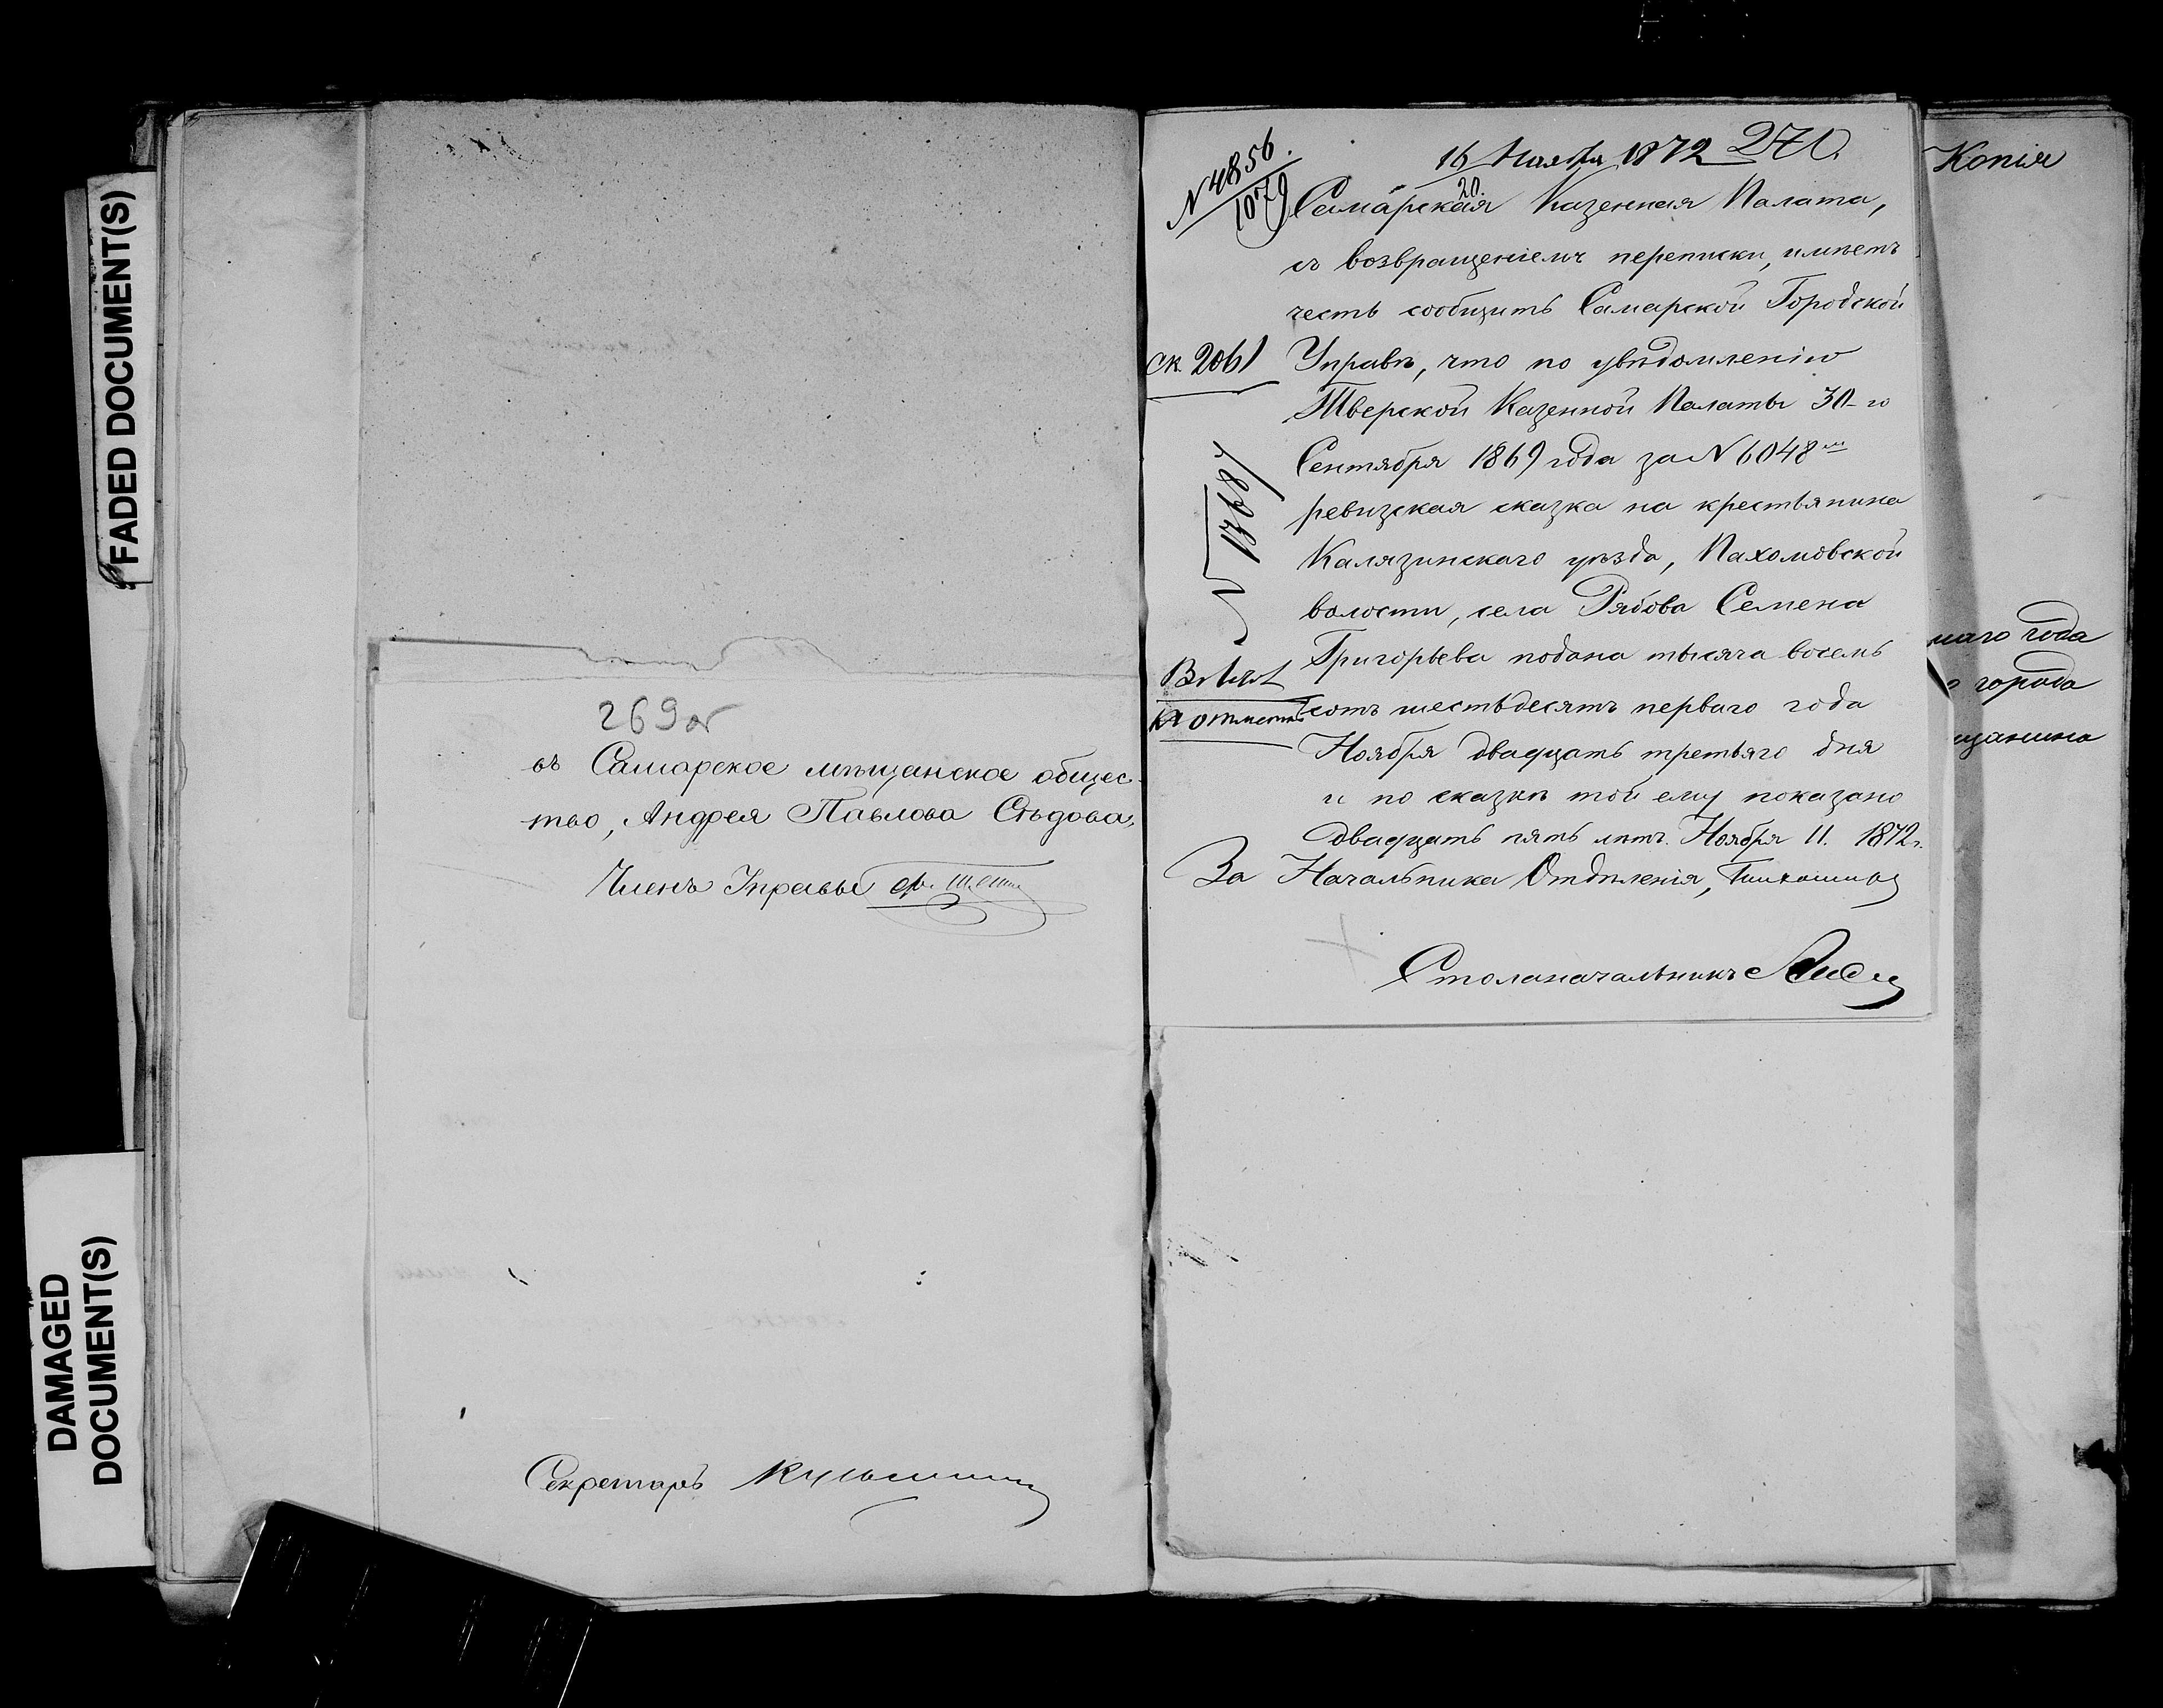 FADED DOCUMENT(S)
DAMAGED
DOCUMENT(S)
269об
въ Самарское мѣщанское общес-
тво, Андрея Павлова Сѣдова,
Членъ Управы
Секретарь
16 Ноября 1872 270.
N 4856.
1079
20.
Самарская Казенная Палата,
съ возвращеніемъ переписки, имѣетъ
честь сообщить Самарской Городской
ск. 2061
Управѣ, что по увѣдомленію
Тверской Казенной Палаты 30-го
Сентября 1869 года за N 6048
ревизская сказка на крестьянина
N 13687
Калязинскаго уѣзда, Пахомовской
волости, села Рябова Семена
Григорьева подана тысяча восемь
сотъ шестьдесятъ перваго года
Ноября двадцать третьяго дня
и по сказкѣ той ему показано
двадцать пять лѣтъ. Ноября 11. 1872 г.
За Начальника Отдѣленія,
Столоначальникъ
Копія
наго года
города
щанина